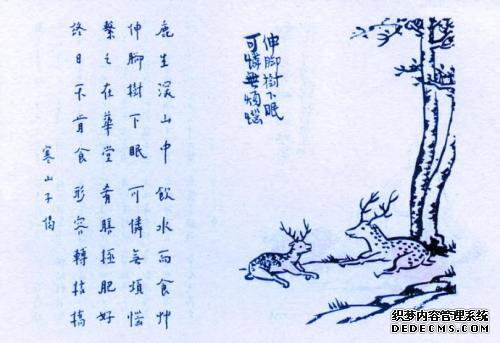 伸脚樹下眠
可憐無煩惱
鹿生深山中 飲水而食艸
伸脚樹下眠 可憐無煩惱
繫之在華堂 肴膳極肥好
終日不肯食 形容轉枯槁
寒山子偈
织梦内容管理系统
DEDECMS.COM